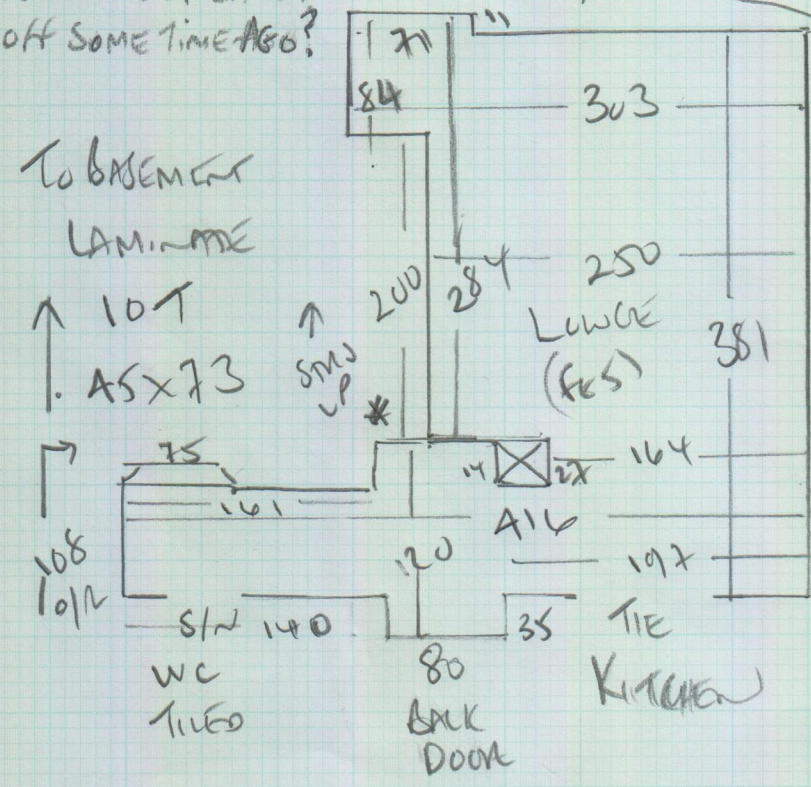 off SOME TIME AGO?
11
71
84
303
TO BASEMENT
LAMINATE
10T
45x73
STRS
UP
200
284
250
LOUNGE
381
75
14
27
164
161
416
108
O/R
120
197
S/N 140
80
35
TIE
KITCHEN
WC
TILED
BACK
DOOR